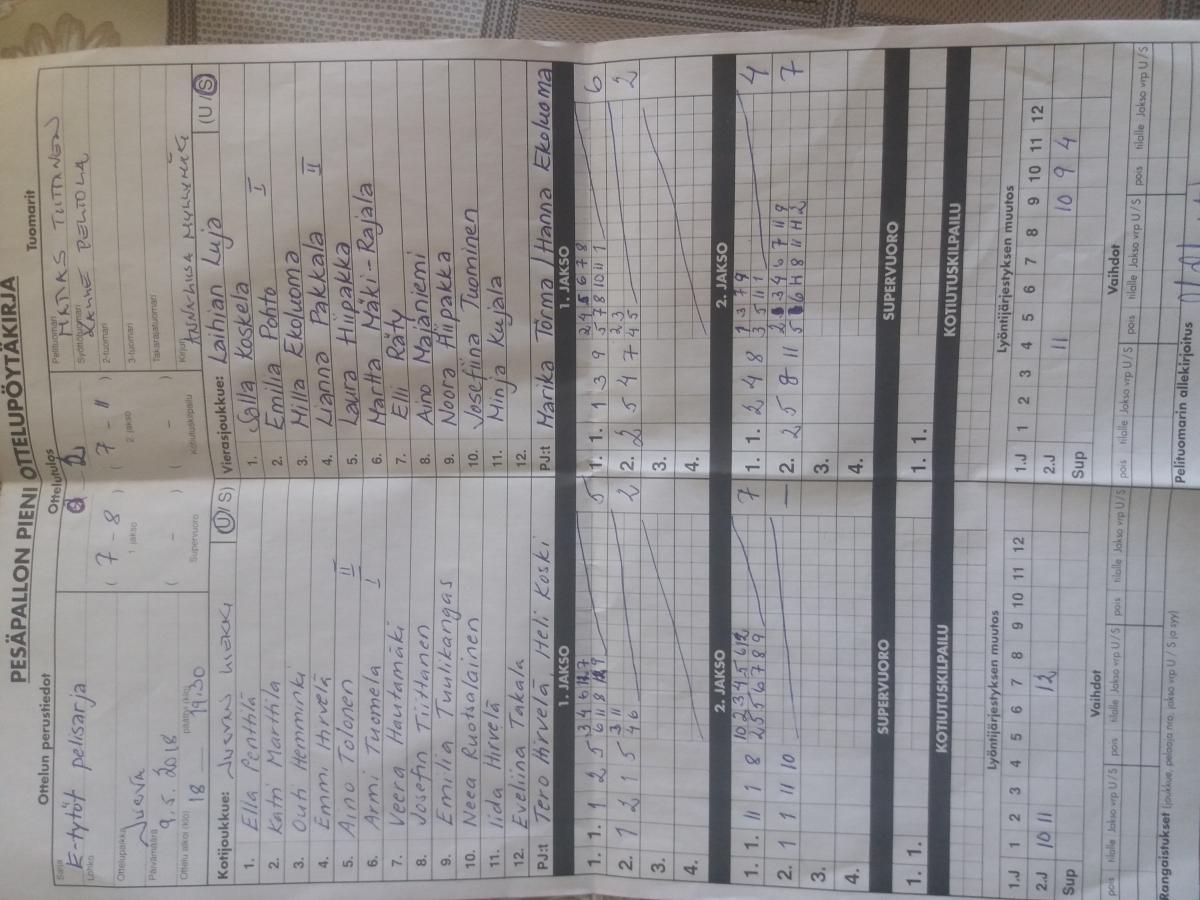 PESÄPALLON PIENI OTTELUPÖYTÄKIRJA
Ottelun perustiedot
Ottelutulos
Tuomarit
Sarja
E-tytöt pelisarja
Lohko
Ottelupaikka
Jurva
Päivämäärä
9.5.2018
Ottelu alkoi (klo)
18
päättyi (klo)
19.30
0 2
( 7 - 8 )
1 jakso
( 7 - 11 )
2. jakso
( - )
Supervuoro
( - )
Kotiutuskilpailu
Pelituomari
Syöttötuomari
2-tuomari
3-tuomari
Takarajatuomari
Kirjuri
Kotijoukkue: (U/S)
1. Ella Penttilä
2. Katri Marttila
3. Outi Hemminki
4. Emmi Hirvelä
5. Aino Tolonen II
6. Armi Tuomela I
7. Veera Hautamäki
8. Josefin Tiitianen
9. Emilia Tuulikangas
10. Neea Ruotsalainen
11. Iida Hirvelä
12. Eveliina Takala
PJ:t Tero Hirvelä Heli Koski
Vierasjoukkue: Laihian Luja (U/S)
1. Salla Koskela I
2. Emilia Pohto
3. Milla Ekoluoma
4. Lianna Pakkala II
5. Laura Hiipakka
6. Martta Mäki-Rajala
7. Elli Räty
8. Aino Majaniemi
9. Noora Hiipakka
10. Josefiina Tuominen
11. Minja Kujala
12.
PJ:t Marika Törmä / Hanna Ekoluoma
1. JAKSO
1. 1. 1 2 5 5
2. 1 2 1 5 2
3.
4.
1. JAKSO
1. 1. 1 3 9 6
2. 2 5 4 7 2
3.
4.
2. JAKSO
1. 1. 11 1 8 7
2. 1 1 11 10 –
3.
4.
2. JAKSO
1. 1. 2 4 8 4
2. 2 5 8 11 7
3.
4.
SUPERVUORO
1. 1.
SUPERVUORO
1. 1.
KOTIUTUSKILPAILU
KOTIUTUSKILPAILU
Lyöntijärjestyksen muutos
1 2 3 4 5 6 7 8 9 10 11 12
1.J
2.J 10 11 12
Sup
Lyöntijärjestyksen muutos
1 2 3 4 5 6 7 8 9 10 11 12
1.J
2.J 11 10 9 4
Sup
Vaihdot
pois tilalle Jakso vrp U/S pois tilalle Jakso vrp U/S pois tilalle Jakso vrp U/S
Vaihdot
pois tilalle Jakso vrp U/S pois tilalle Jakso vrp U/S pois tilalle Jakso vrp U/S
Rangaistukset (joukkue, pelaaja nro, jakso vrp U/S ja syy)
Pelituomarin allekirjoitus